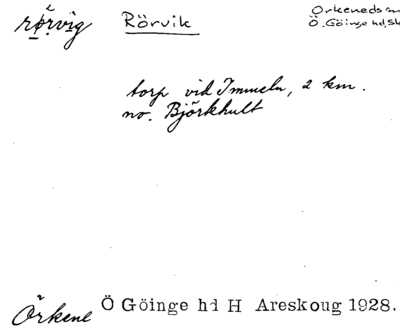 rørvig Rörvik Örkeneds
Ö. Göinge hd, Sk
torp vid Immeln, 2 km.
no. Björkhult
Örkene Ö Göinge hd H Areskoug 1928.